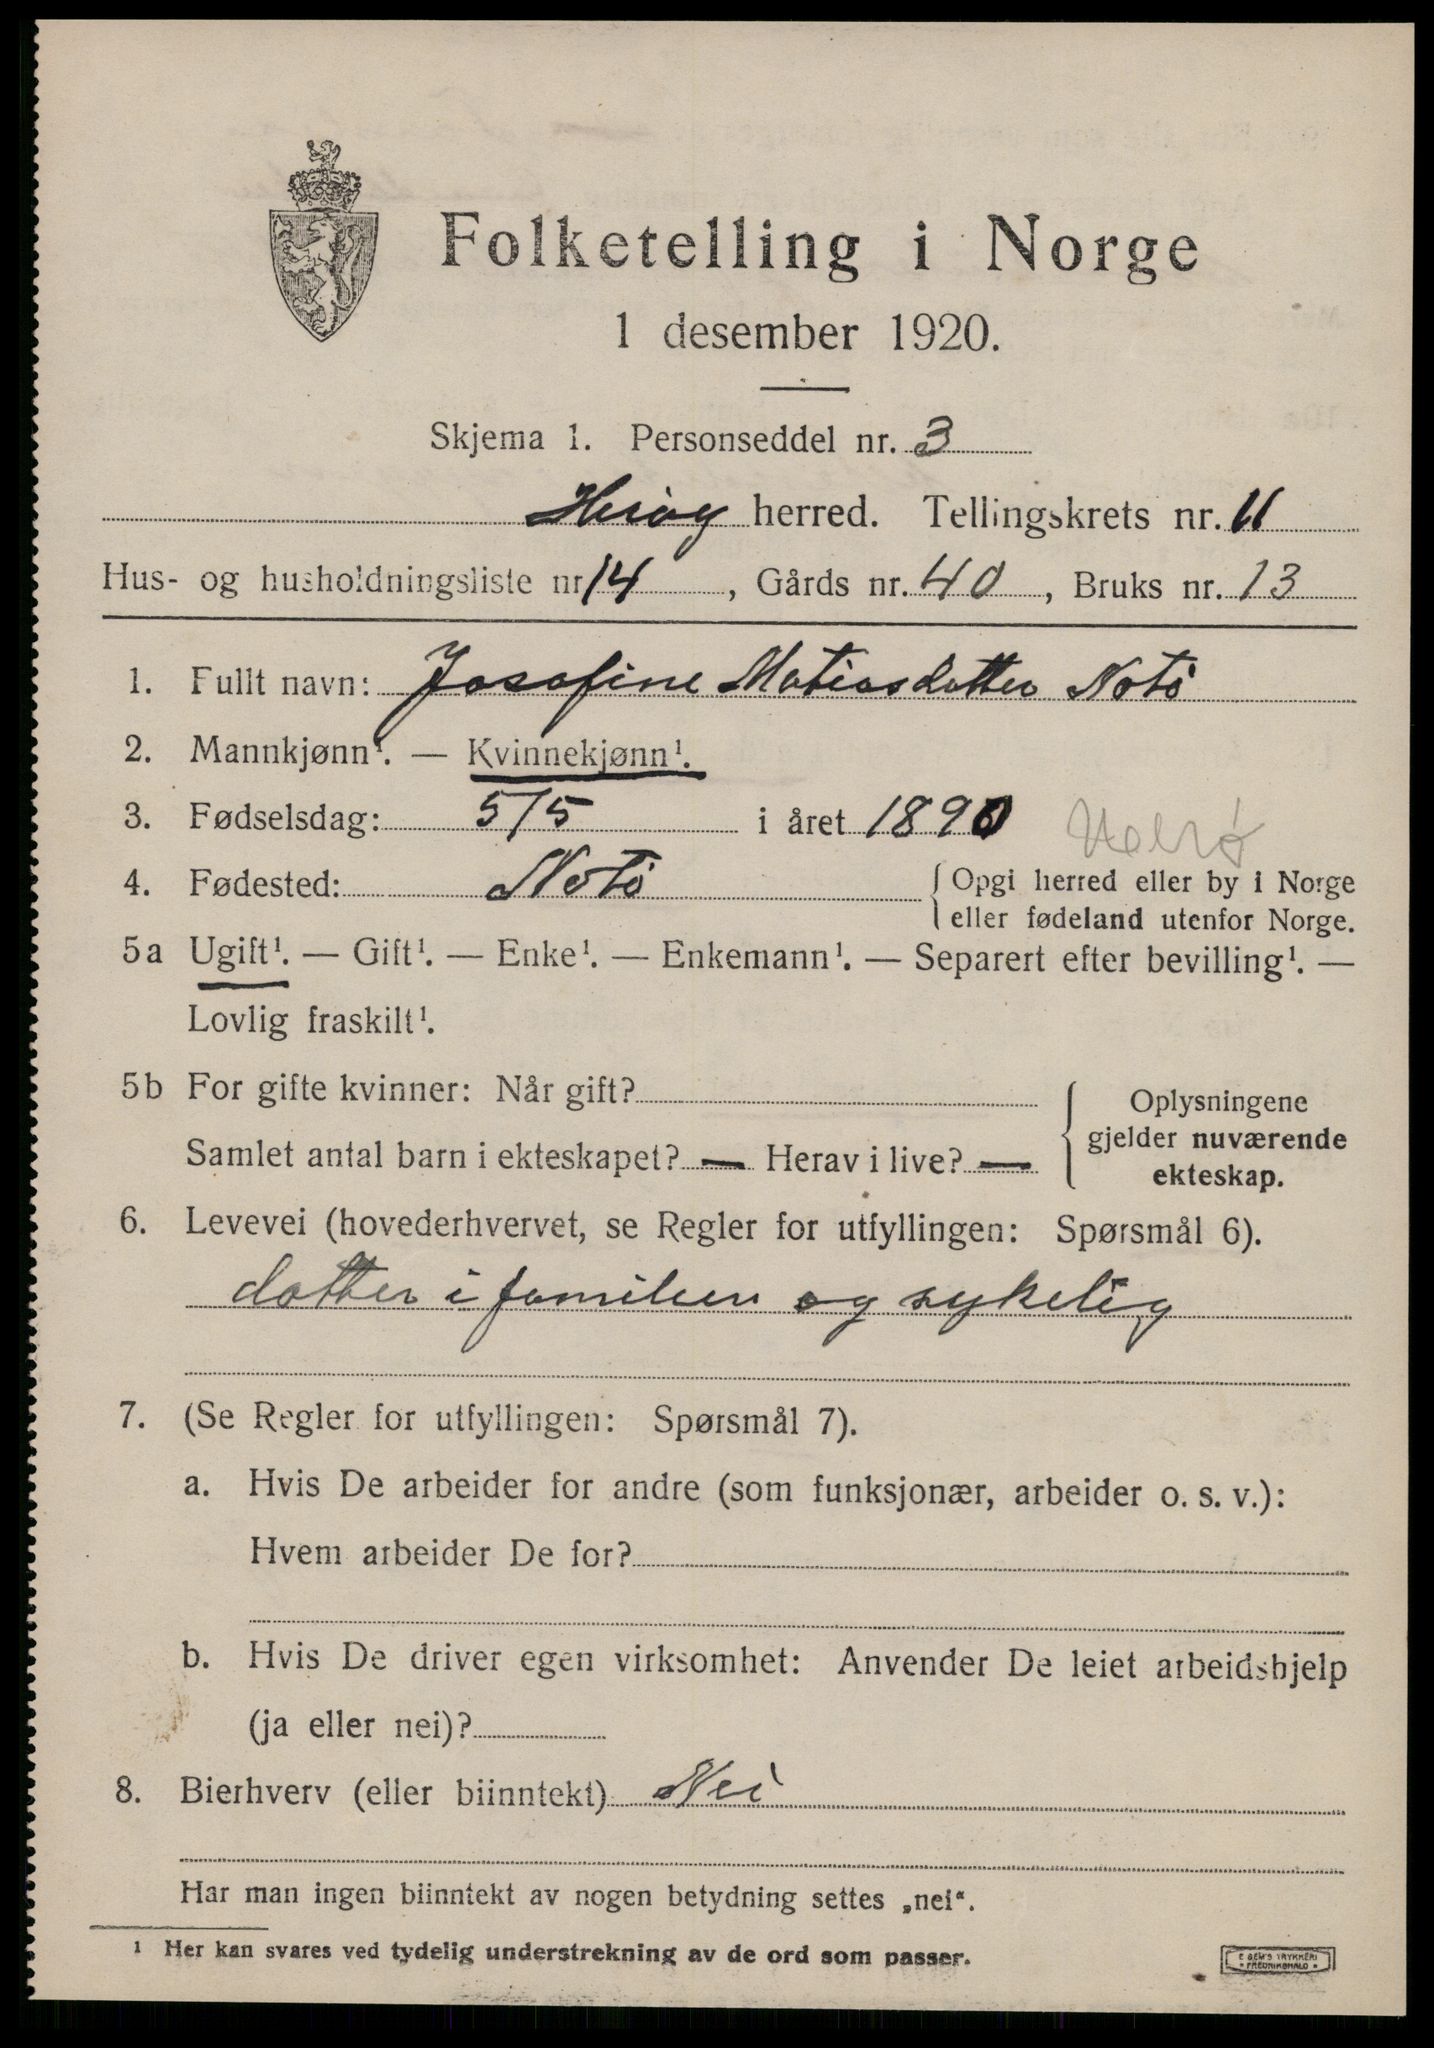 Folketelling i Norge
1 desember 1920.
Skjema 1. Personseddel nr. 3
Herøy herred. Tellingskrets nr. 11
Hus- og husholdningsliste nr 14, Gårds nr. 40, Bruks nr. 13
1. Fullt navn: Josefine Matiasdatter Notø
2. Mannkjønn¹. — Kvinnekjønn¹.
3. Fødselsdag: 5/5 i året 1890
4. Fødested: Notø { Opgi herred eller by i Norge
eller fødeland utenfor Norge.
5a Ugift¹. — Gift¹. — Enke¹. — Enkemann¹. — Separert efter bevilling¹. —
Lovlig fraskilt¹.
5b For gifte kvinner: Når gift?
Samlet antal barn i ekteskapet? — Herav i live? —
Oplysningene
gjelder nuværende
ekteskap.
6. Levevei (hovederhvervet, se Regler for utfyllingen: Spørsmål 6).
datter i familien og sykelig
7. (Se Regler for utfyllingen: Spørsmål 7).
a. Hvis De arbeider for andre (som funksjonær, arbeider o. s. v.):
Hvem arbeider De for?
b. Hvis De driver egen virksomhet: Anvender De leiet arbeidshjelp
(ja eller nei)?
8. Bierhverv (eller biinntekt) Nei
Har man ingen biinntekt av nogen betydning settes „nei“.
¹ Her kan svares ved tydelig understrekning av de ord som passer.
E SEM'S TRYKKERI
• FREDRIKSHALD •